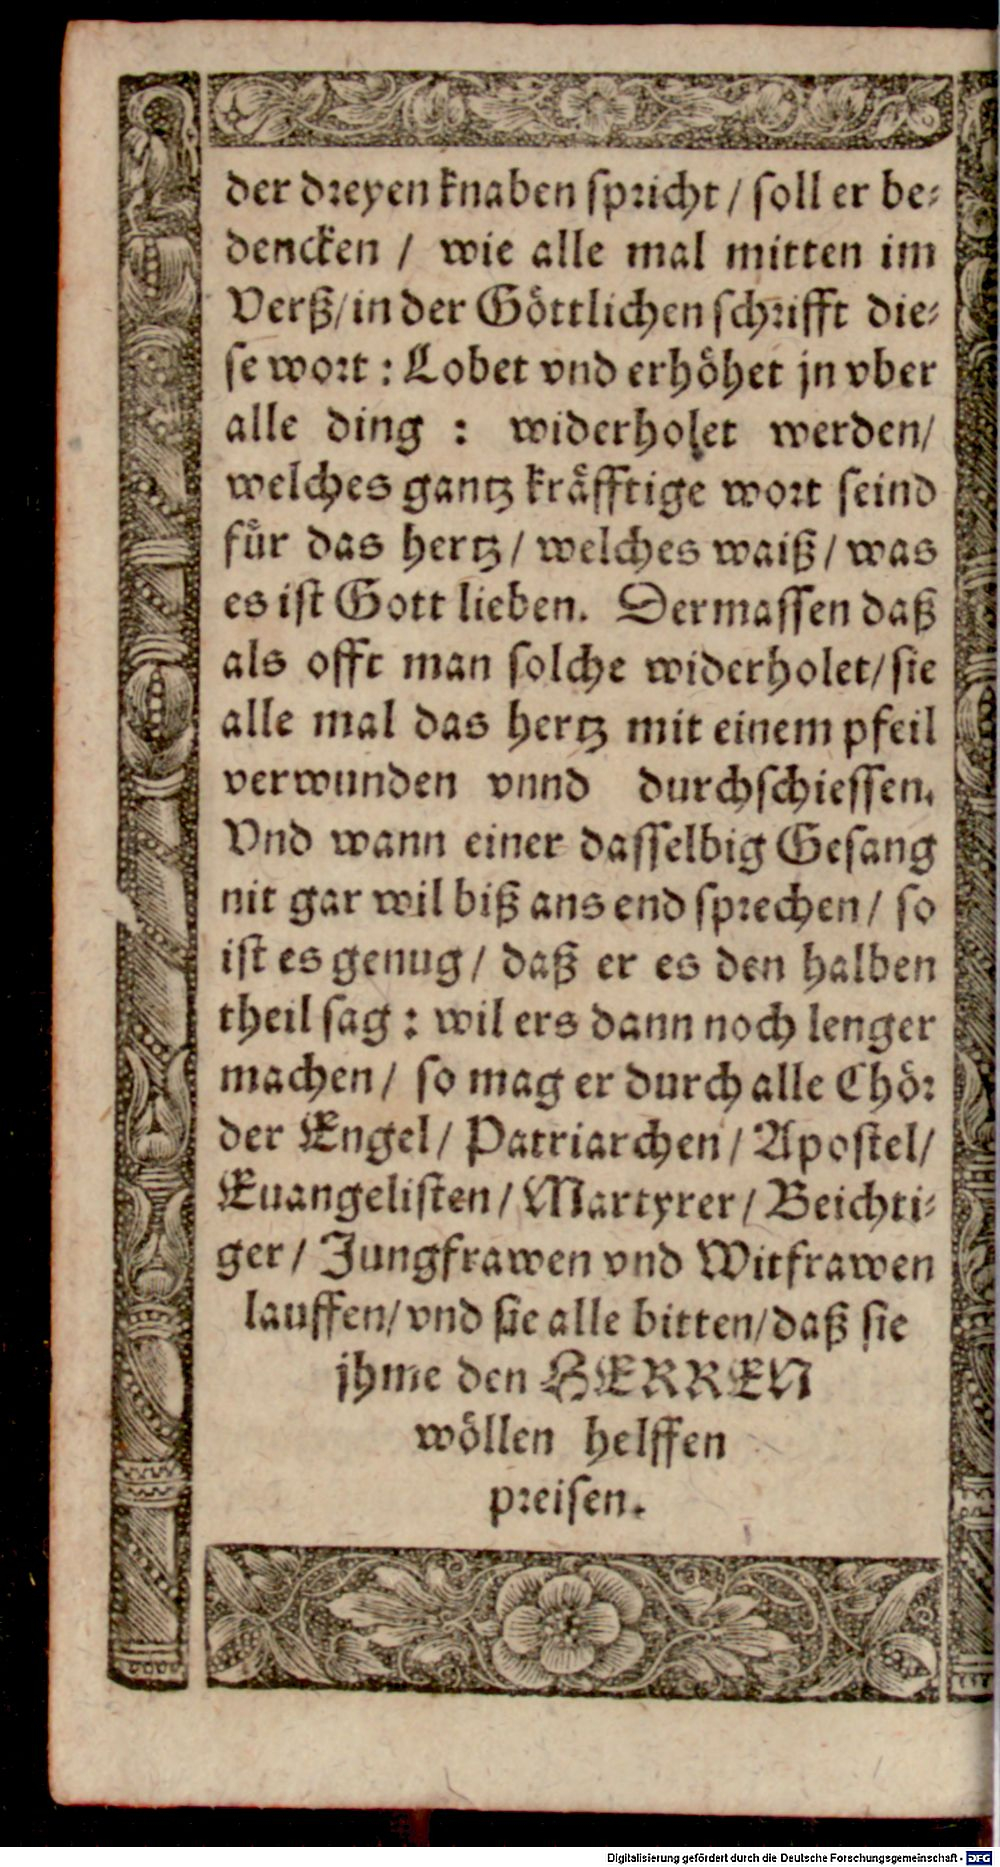 der dreyen knaben spricht / soll er be⸗
dencken / wie alle mal mitten im
Verß/ in der Göttlichen schrifft die⸗
se wort : Lobet vnd erhöhet jn vber
alle ding : widerholet werden/
welches gantz kräfftige wort seind
für das hertz / welches waiß / was
es ist Gott lieben. Dermassen daß
als offt man solche widerholet/ sie
alle mal das hertz mit einem pfeil
verwunden vnnd durchschiessen.
Vnd wann einer dasselbig Gesang
nit gar wil biß ans end sprechen / so
ist es genug / daß er es den halben
theil sag : wil ers dann noch lenger
machen / so mag er durch alle Chör
der Engel / Patriarchen / Apostel/
Euangelisten / Martyrer / Beichti⸗
ger / Jungfrawen vnd Witfrawen
lauffen/ vnd sie alle bitten/ daß sie
jhme den HERREN
wöllen helffen
preisen.
Digitalisierung gefördert durch die Deutsche Forschungsgemeinschaft - DFG